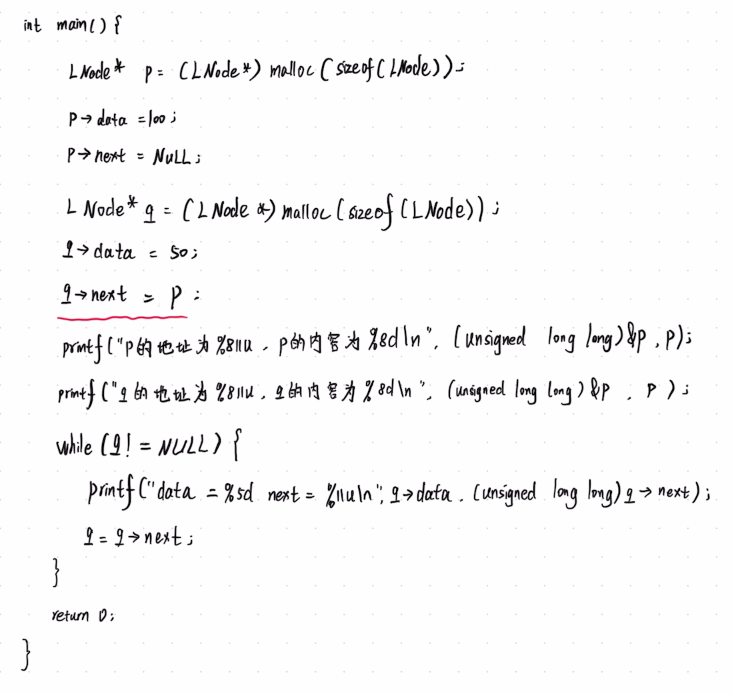 int main() {
LNode* p = (LNode*) malloc(sizeof(LNode));
p→data =100;
p→next = NULL;
LNode* q = (LNode *) malloc(sizeof(LNode));
q→data = 50;
q→next = p;
printf("p的地址为%8llu, p的内容为%8d\n", (unsigned long long)&p, p);
printf("q的地址为%8llu, q的内容为%8d\n", (unsigned long long)&p, p);
while (q != NULL) {
printf("data = %5d next = %llu\n", q→data, (unsigned long long)q→next);
q = q→next;
}
return 0;
}